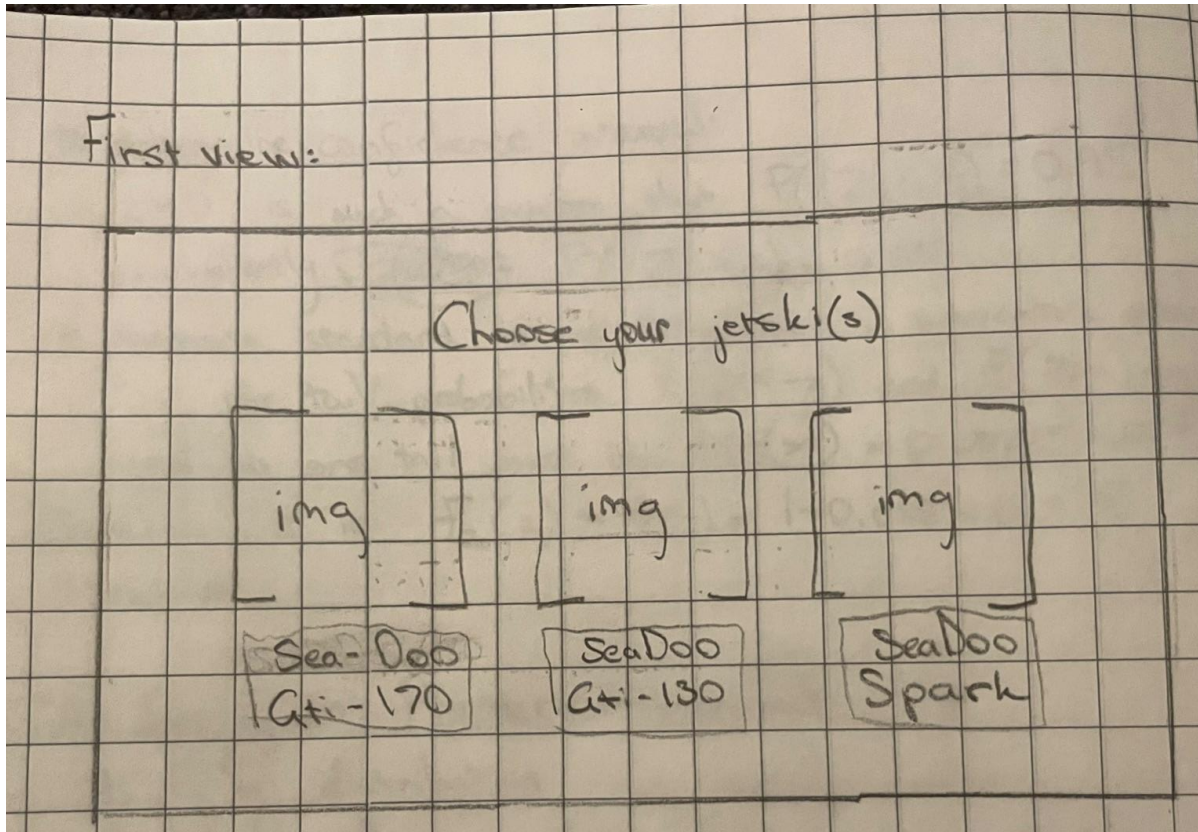 First view:
Choose your jetski(s)
img img img
Sea-Doo SeaDoo SeaDoo
Gti-170 Gti-130 Spark